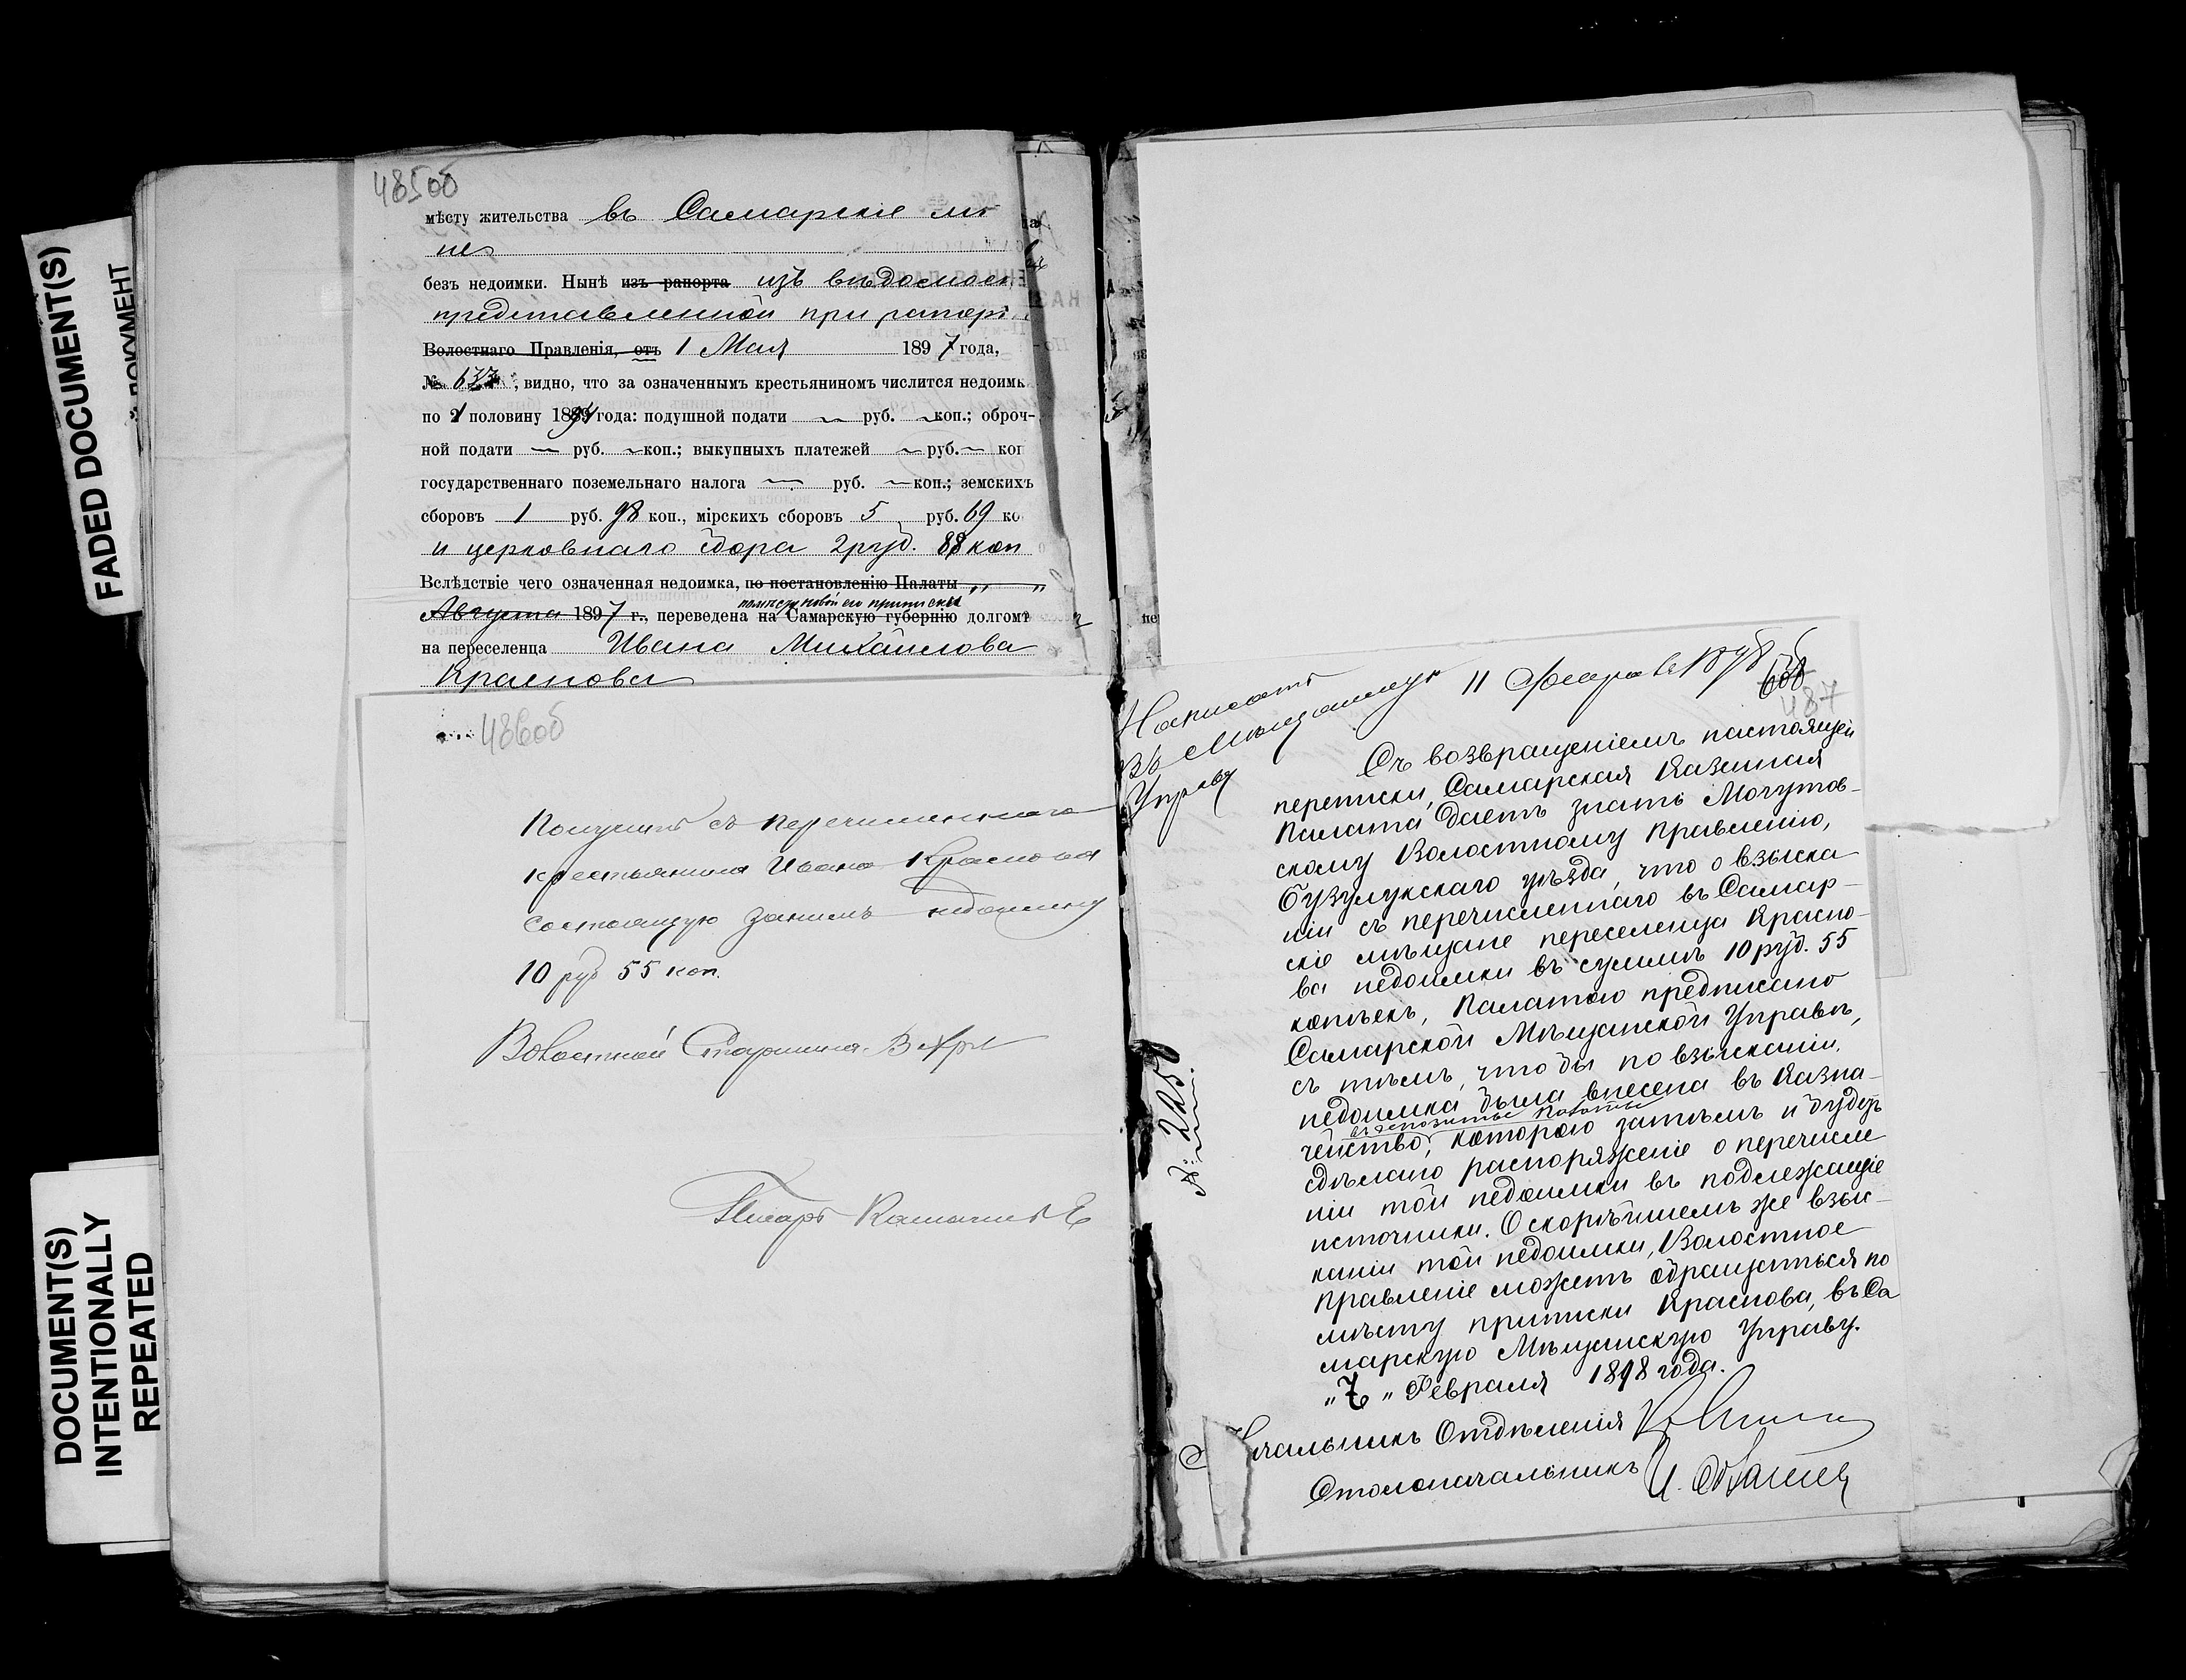 FADED DOCUMENT(S)
DOCUMENT(S)
INTENTIONALLY
REPEATED
485об
мѣсту жительства въ Самарскіе мѣ
не
безъ недоимки. Нынѣ изъ рапорта изъ вѣдомост
представленной при рапорт
Волостнаго Правленія, отъ 1 Мая 1897 года,
№ 633, видно, что за означеннымъ крестьяниномъ числится недоимк
по половину 18 года: подушной подати — руб. — коп.; оброч-
ной подати — руб. — коп.; выкупныхъ платежей — руб. — коп
государственнаго поземельнаго налога — руб. — коп.; земскихъ
сборовъ 1 руб. 98 коп., мірскихъ сборовъ 5 руб. 69 ко
и церковнаго сбора 2 руб. 88 коп
Вслѣдствіе чего означенная недоимка, по постановленію Палаты „ "
Августа 1897 г., переведена по мѣсту новой его приписки на Самарскую губернію долгомъ
на переселенца Ивана Михайлова
Краснова
486об
Получить съ перечисленнаго
крестьянина Ивана Краснова
состоящую занимъ недоимку
10 руб 55 коп.
Волостной Старшина
Писарь
Написать
въ Мѣщанскую
Управу
11 Февра
487
Съ возвращеніемъ настоящей
переписки, Самарская Казенная
Палата даетъ знать Могутов-
скому Волостному Правленію,
Бузулукскаго уѣзда, что о взыска
ніи съ перечисленнаго въ Самар-
скіе мѣщане переселенца Красно-
ва недоимки въ суммѣ 10 руб. 55
копѣекъ, Палатою предписано
Самарской Мѣщанской Управѣ,
съ тѣмъ, чтобы по взысканіи,
недоимка была внесена въ Казна-
въ депозитъ Палаты
чейство, которою затѣмъ и будетъ
сдѣлано распоряженіе о перечисле
ніи той недоимки въ подлежащіе
источники. О скорѣйшемъ же взыс-
каніи той недоимки, Волостное
Правленіе можетъ обращаться по
мѣсту приписки Краснова, въ Са
марскую Мѣщанскую Управу.
„7" Февраля 1898 года.
№ 225
Начальникъ Отдѣленія
Столоначальникъ